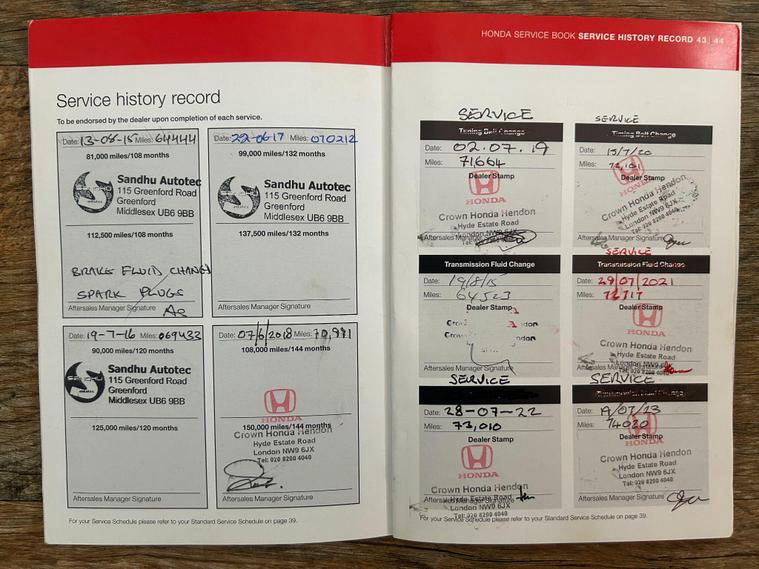 HONDA SERVICE BOOK SERVICE HISTORY RECORD 43 | 44
Service history record
To be endorsed by the dealer upon completion of each service.
Date: 13-08-15 Miles: 64444
81,000 miles/108 months
Sandhu Autotec
115 Greenford Road
Greenford
Middlesex UB6 9BB
112,500 miles/108 months
BRAKE FLUID CHANGE
SPARK PLUGS
Aftersales Manager Signature
Date: 22-06-17 Miles: 070212
99,000 miles/132 months
Sandhu Autotec
115 Greenford Road
Greenford
Middlesex UB6 9BB
137,500 miles/132 months
Aftersales Manager Signature
Date: 19-7-16 Miles: 069433
90,000 miles/120 months
Sandhu Autotec
115 Greenford Road
Greenford
Middlesex UB6 9BB
125,000 miles/120 months
Aftersales Manager Signature
Date: 07/6/2018 Miles: 70,991
108,000 miles/144 months
HONDA
150,000 miles/144 months
Crown Honda Hendon
Hyde Estate Road
London NW9 6JX
Tel: 020 8200 4040
Aftersales Manager Signature
For your Service Schedule please refer to your Standard Service Schedule on page 39.
SERVICE
Timing Belt Change
Date: 02.07.19
Miles: 71,664
Dealer Stamp
HONDA
Crown Honda Hendon
Hyde Estate Road
London NW9 6JX
Aftersales Manager Signature
SERVICE
Timing Belt Change
Date: 15/7/20
Miles:
Dealer Stamp
HONDA
Crown Honda Hendon
Hyde Estate Road
London NW9 6JX
Tel: 020 8200 4040
Aftersales Manager Signature
Transmission Fluid Change
Date: 19/8/15
Miles: 64523
Dealer Stamp
Aftersales Manager Signature
SERVICE
Transmission Fluid Change
Date: 29/07/2021
Miles: 72717
Dealer Stamp
HONDA
Crown Honda Hendon
Hyde Estate Road
London NW9 6JX
Tel: 020 8200 4040
Aftersales Manager Signature
SERVICE
Date: 28-07-22
Miles: 73,010
Dealer Stamp
HONDA
Crown Honda Hendon
Hyde Estate Road
London NW9 6JX
Tel: 020 8200 4040
Aftersales Manager Signature
SERVICE
Date: 19/07/23
Miles: 74020
Dealer Stamp
HONDA
Crown Honda Hendon
Hyde Estate Road
London NW9 6JX
Tel: 020 8200 4040
Aftersales Manager Signature
For your Service Schedule please refer to your Standard Service Schedule on page 39.